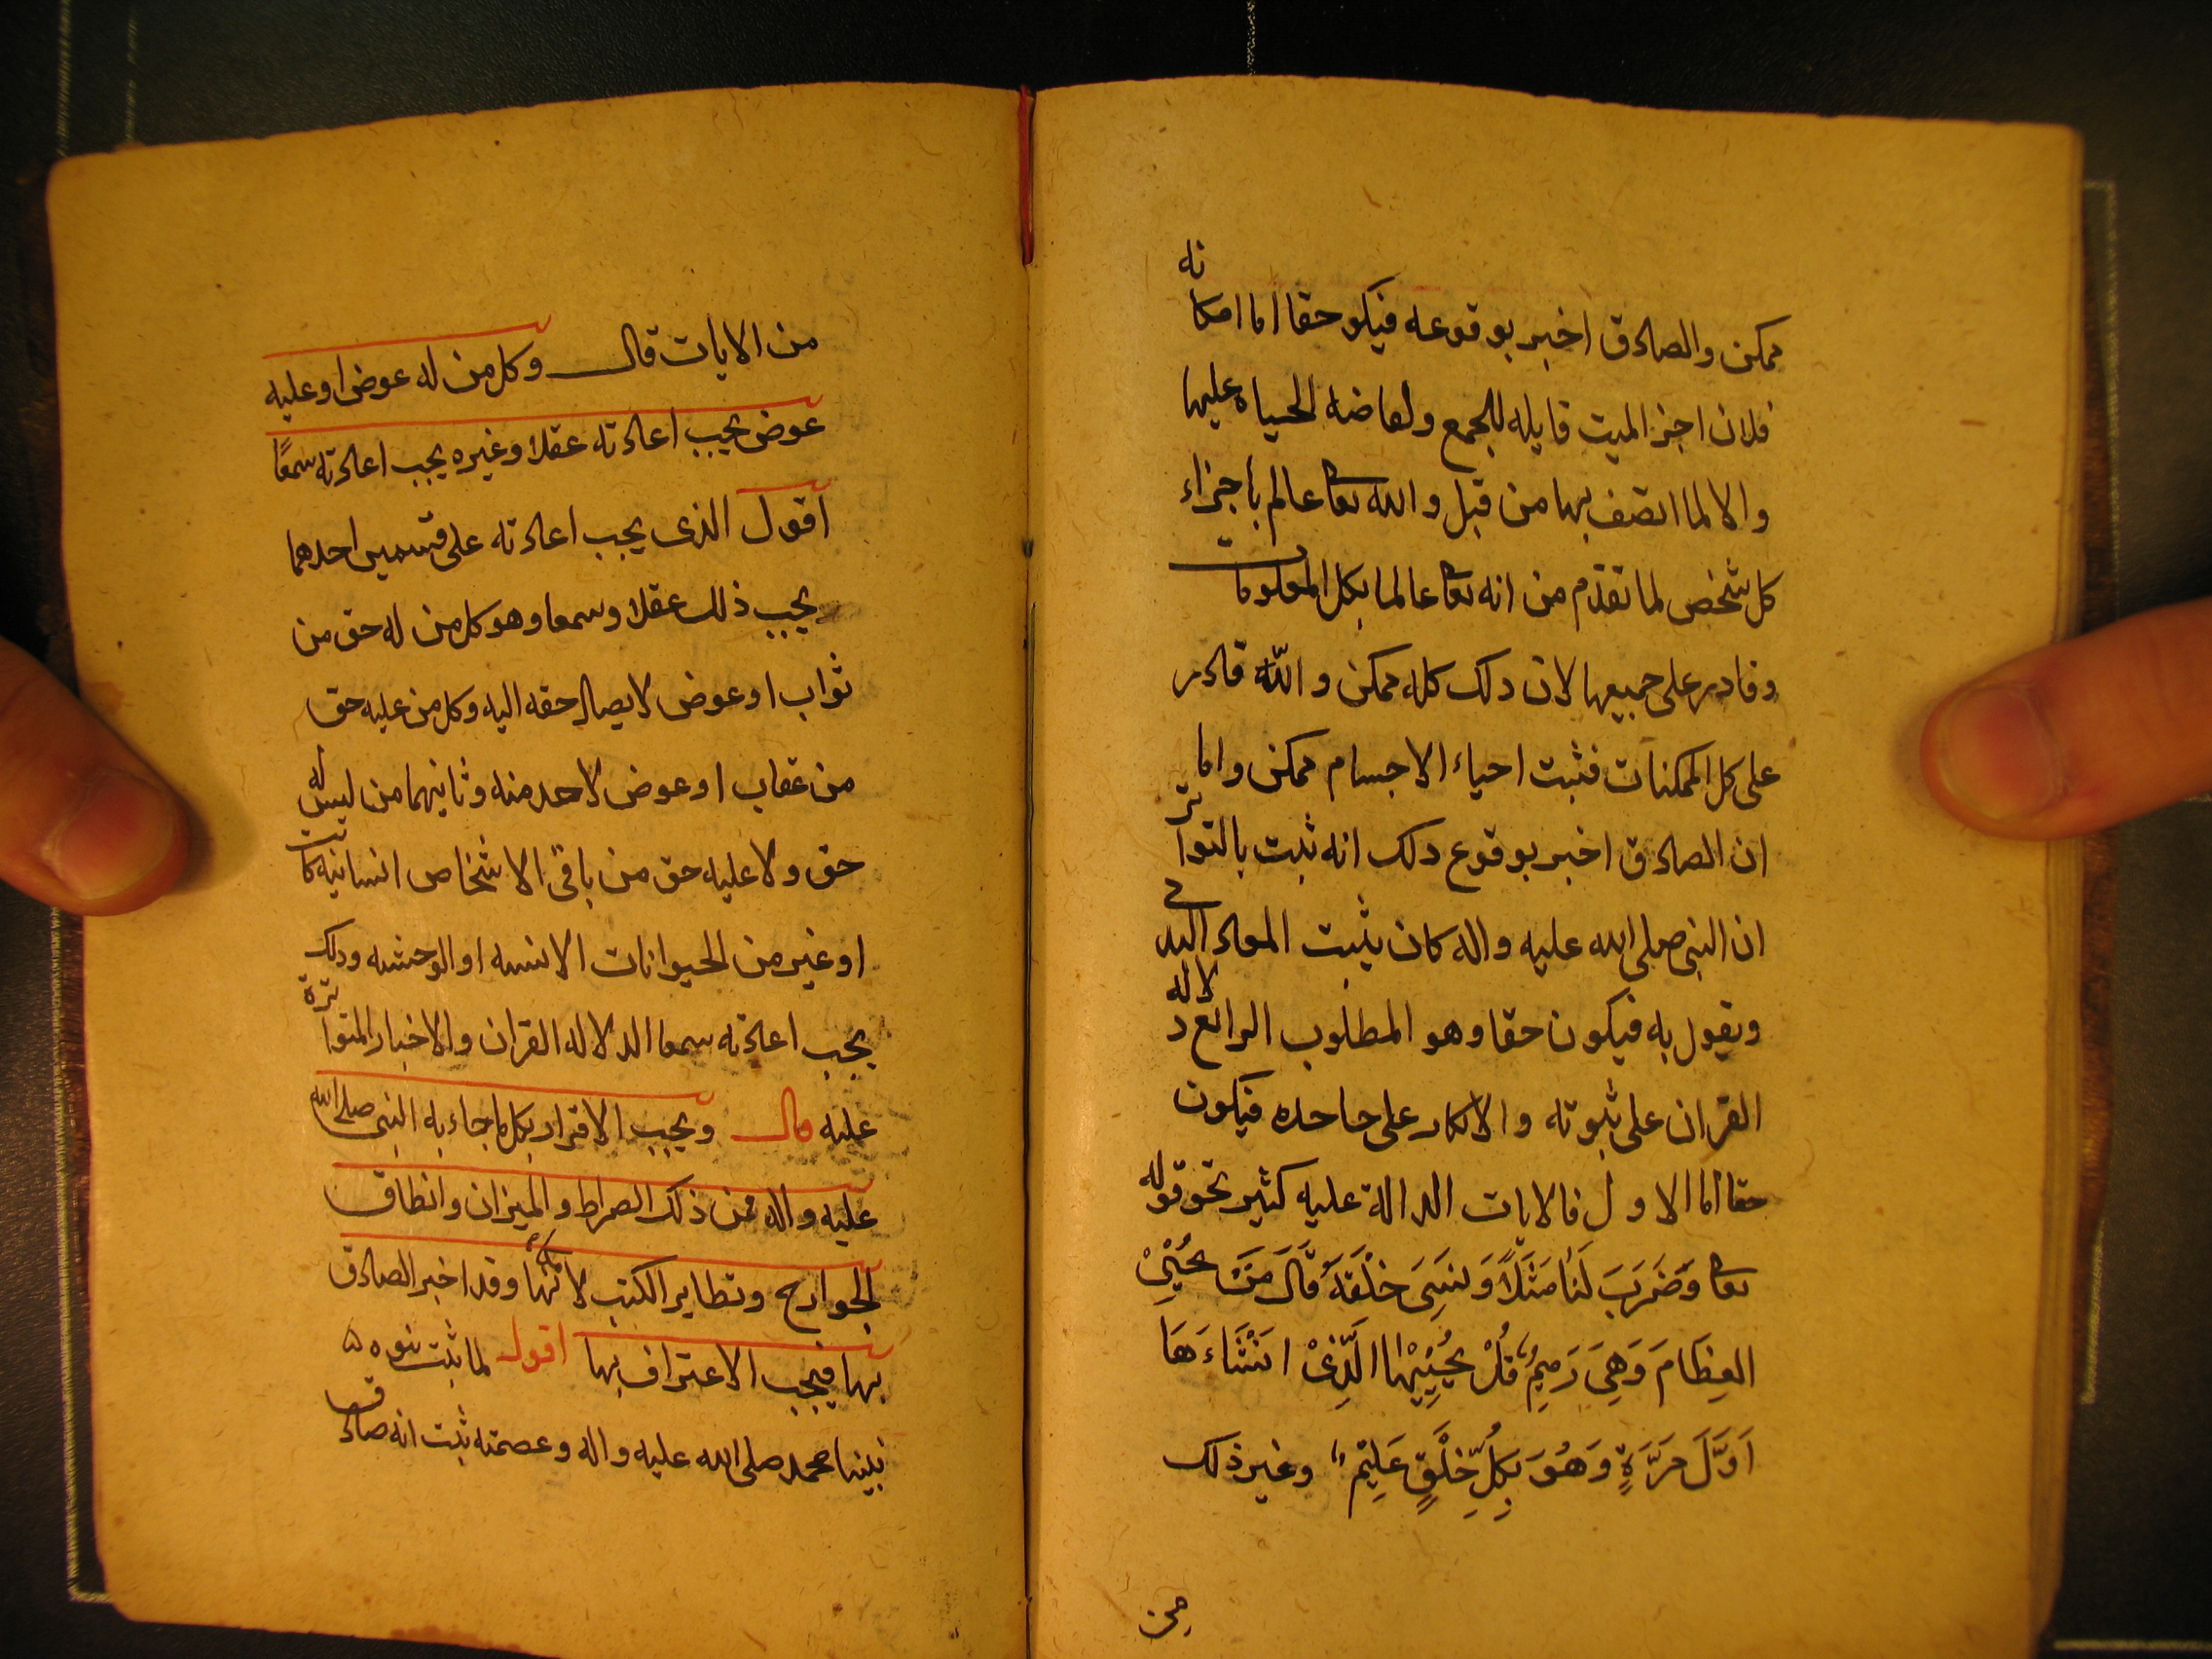 ممكن والصادق اخبر بوقوعه فيكو حقا اما امكانه
فلان اجزا الميت قابله للجمع ولفاضه الحياة عليها
والا لما اتصف بها من قبل والله تعا عالم باجزاء
كل شخص لما تقدم من انه تعا عالما بكل المعلومات
وقادر على جميعها لان دلك كله ممكن والله قادر
على كل الممكنات فثبت احياء الاجسام ممكن واما
ان الصادق اخبر بوقوع دلك انه ثبت بالتواتر
ان النبي صلى الله عليه واله كان يثبت المعاد البدني
ويقول به فيكون حقا وهو المطلوب الرابع دلاله
القران على ثبوته والانكار على جاحده فيكون
حقا اما الاول فالايات الدالة عليه كثير نحو قوله
تعا وَضَرَبَ لَنَا مَثَلًا وَنَسِىَ خَلْقَهُ قَالَ مَنْ يُحْيِىْ
العِظَامَ وَهِىَ رَمِيمٌ قُلْ يُحْيِيْهَا الَّذِىْ انْشَاءَهَا
اَوَّلَ مَرَّةٍ وَهُوَ بِكُلِّ خَلْقٍ عَلِيْمٌ وغير ذلك
من
من الايات قال وكل من له عوض او عليه
عوض يجب اعادته عقلا وغيره يجب اعادته سمعًا
اقول الذى يجب اعادته على قسمين احدهما
يجب ذلك عقلا وسمعا وهو كل من له حق من
ثواب او عوض لايصال حقه اليه وكل من عليه حق
من عقاب او عوض لاحد منه وثانيهما من ليس له
حق ولا عليه حق من باقى الاشخاص انسانيه كانت
او غير من الحيوانات الانسيه او الوحشيه ودلك
يجب اعادته سمعا الدلاله القران والاخبار المتواترة
عليه قال ويجب الاقرار بكل ما جاء به النبى صلى الله
عليه واله فمن ذلك الصراط والميزان وانطاق
الجوارح وتطاير الكتب لامكانها وقد اخبر الصادق
بها فيجب الاعتراف بها اقول لما ثبت نبوه
نبينا محمد صلى الله عليه واله وعصمته ثبت انه صادق